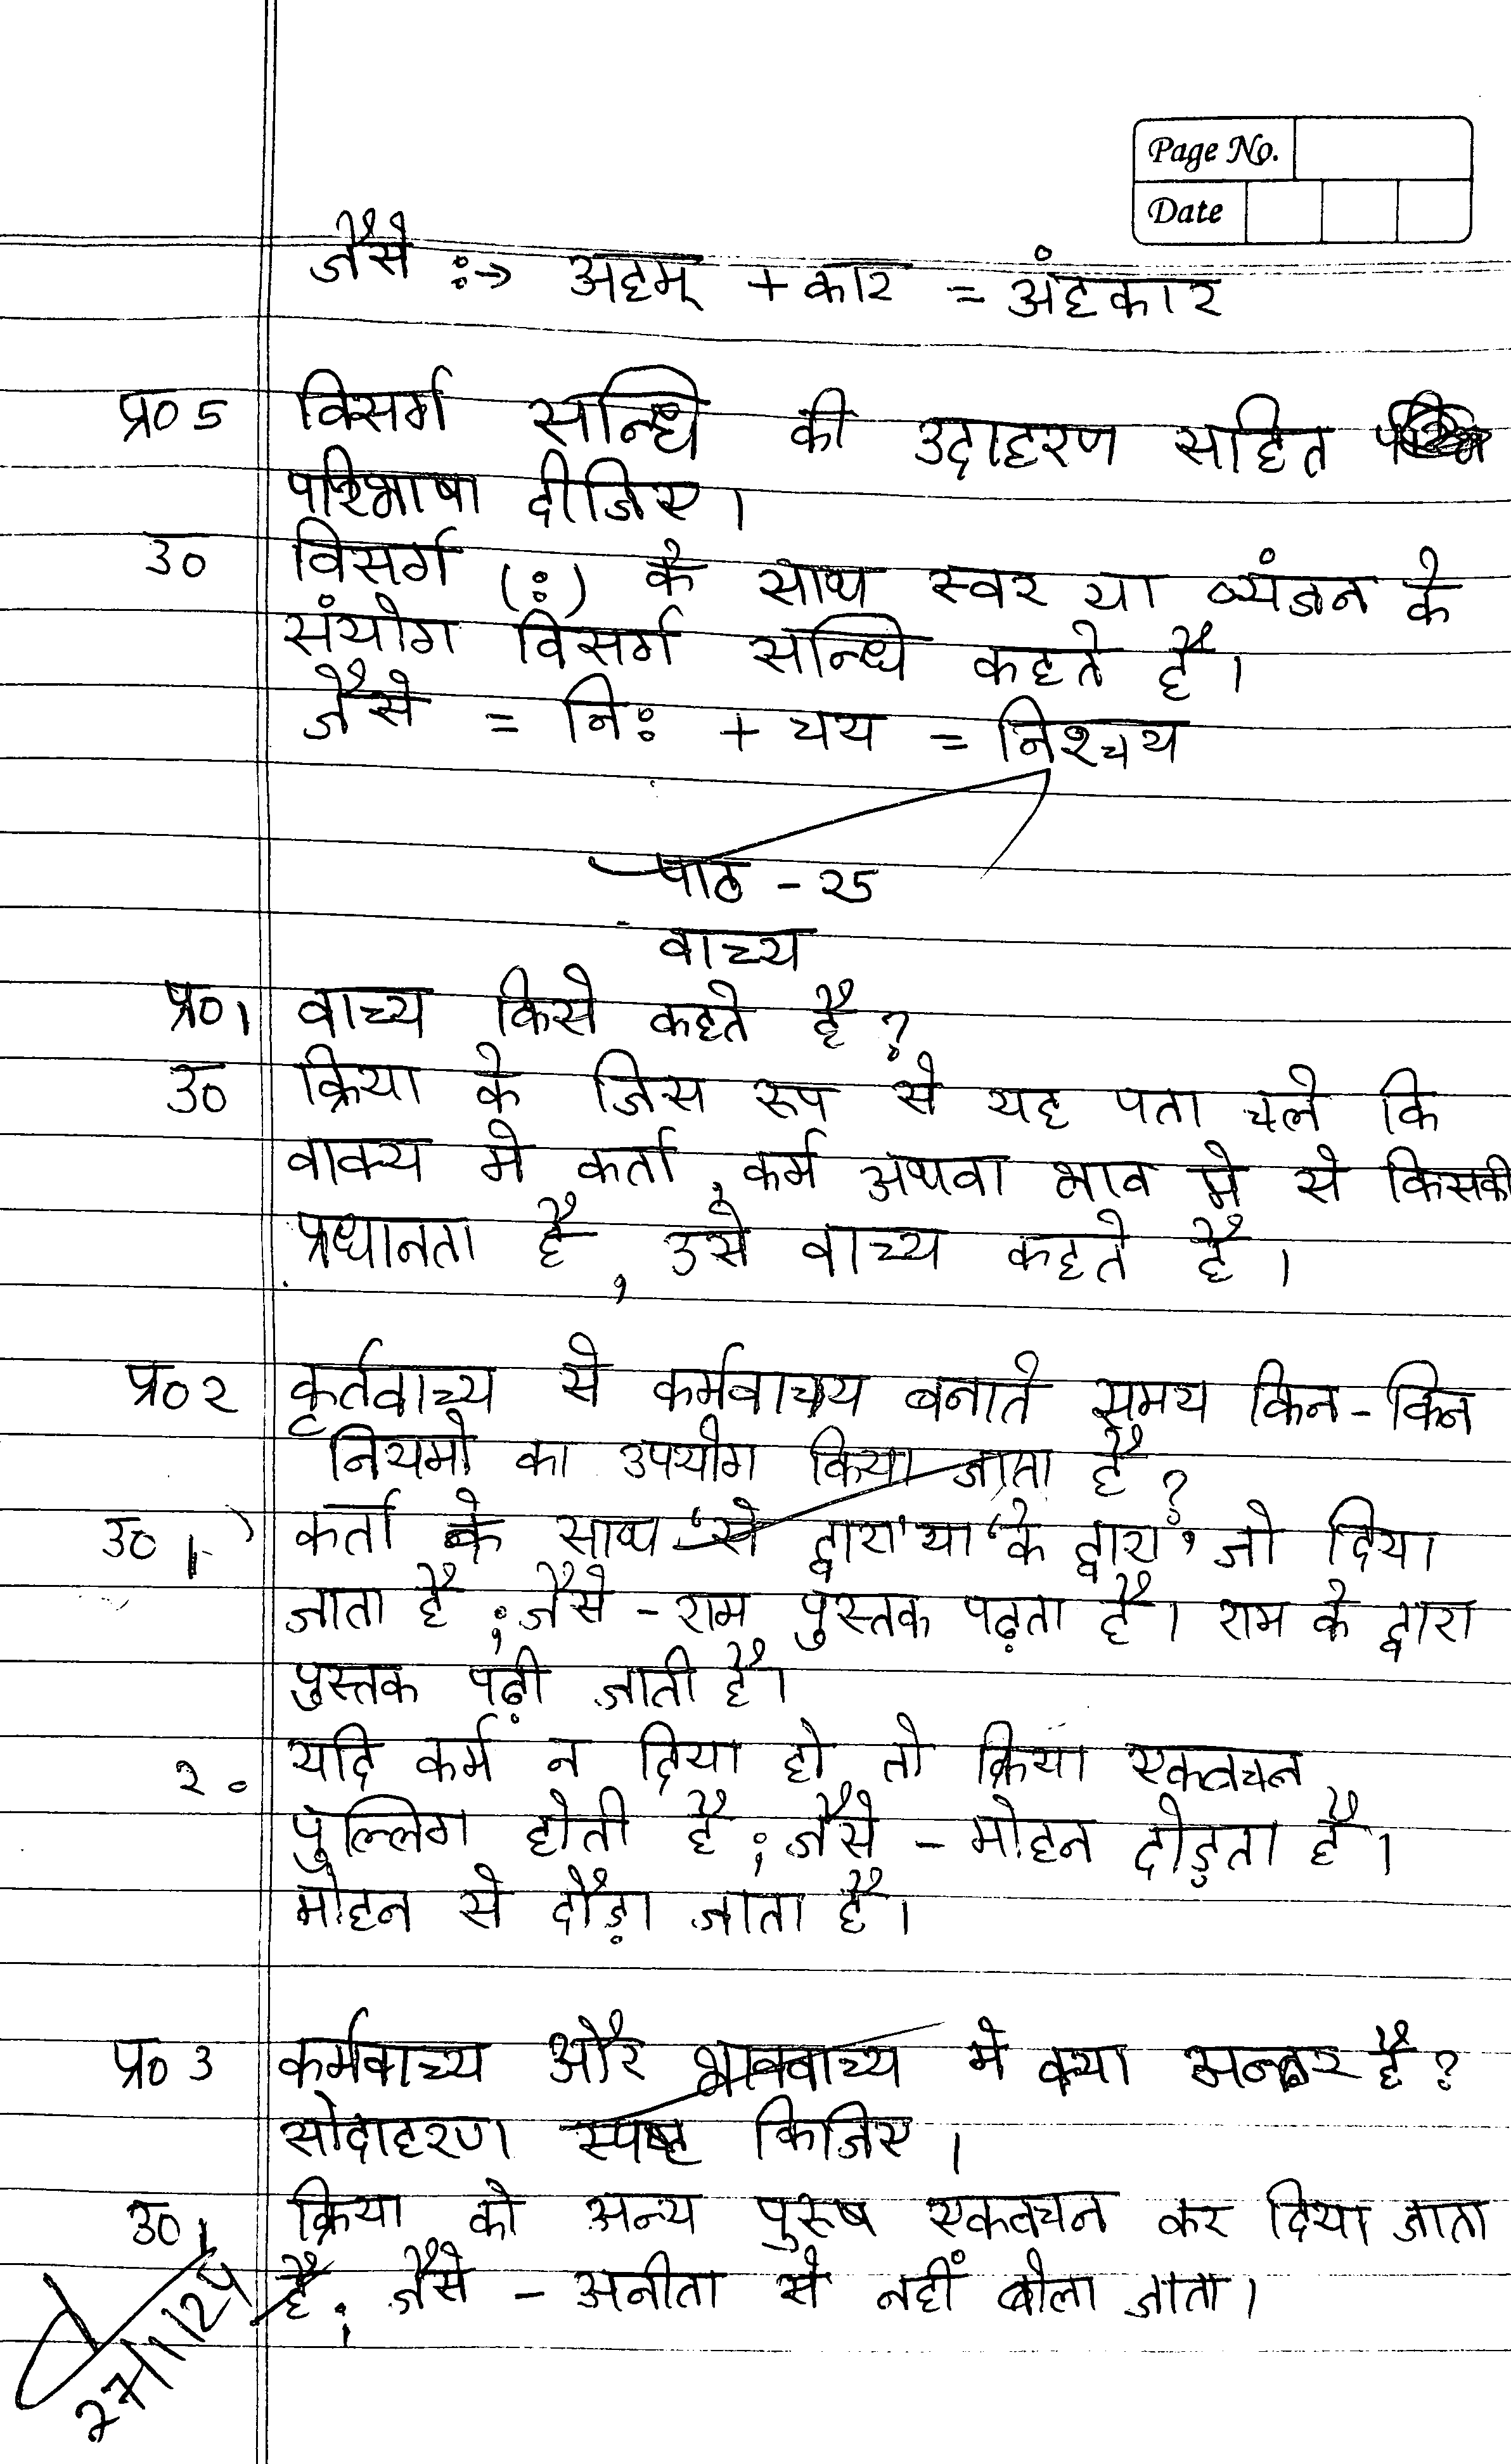 Page No.
Date
जैसे :→ अहम् + कार = अंहकार
प्र० 5 विसर्ग सन्धि की उदाहरण सहित
परिभाषा दीजिए।
उ० विसर्ग (:) के साथ स्वर या व्यंजन के
संयोग विसर्ग सन्धि कहते हैं।
जैसे = निः + चय = निश्चय
पाठ - २5
वाच्य
प्र० 1 वाच्य किसे कहते है?
उ० क्रिया के जिस रूप से यह पता चले कि
वाक्य मे कर्ता, कर्म अथवा भाव मे से किसकी
प्रधानता है, उसे वाच्य कहते है।
प्र० २ कृर्तवाच्य से कर्मवाच्य बनाते समय किन-किन
नियमो का उपयोग किया जाता है?
उ० 1 कर्ता के साथ 'से द्वारा' या 'के द्वारा' जो दिया
जाता है; जैसे - राम पुस्तक पढ़ता है। राम के द्वारा
पुस्तक पढ़ी जाती है।
२. यदि कर्म न दिया हो तो क्रिया एकवचन
पुल्लिग होती है; जैसे - मोहन दोड़ता है।
मोहन से दौड़ा जाता है।
प्र० 3 कर्मवाच्य और भाववाच्य मे क्या अन्तर है?
सोदाहरण स्पष्ट किजिए।
उ० 1 क्रिया को अन्य पुरुष एकवचन कर दिया जाता
है; जैसे - अनीता से नहीं बोला जाता।